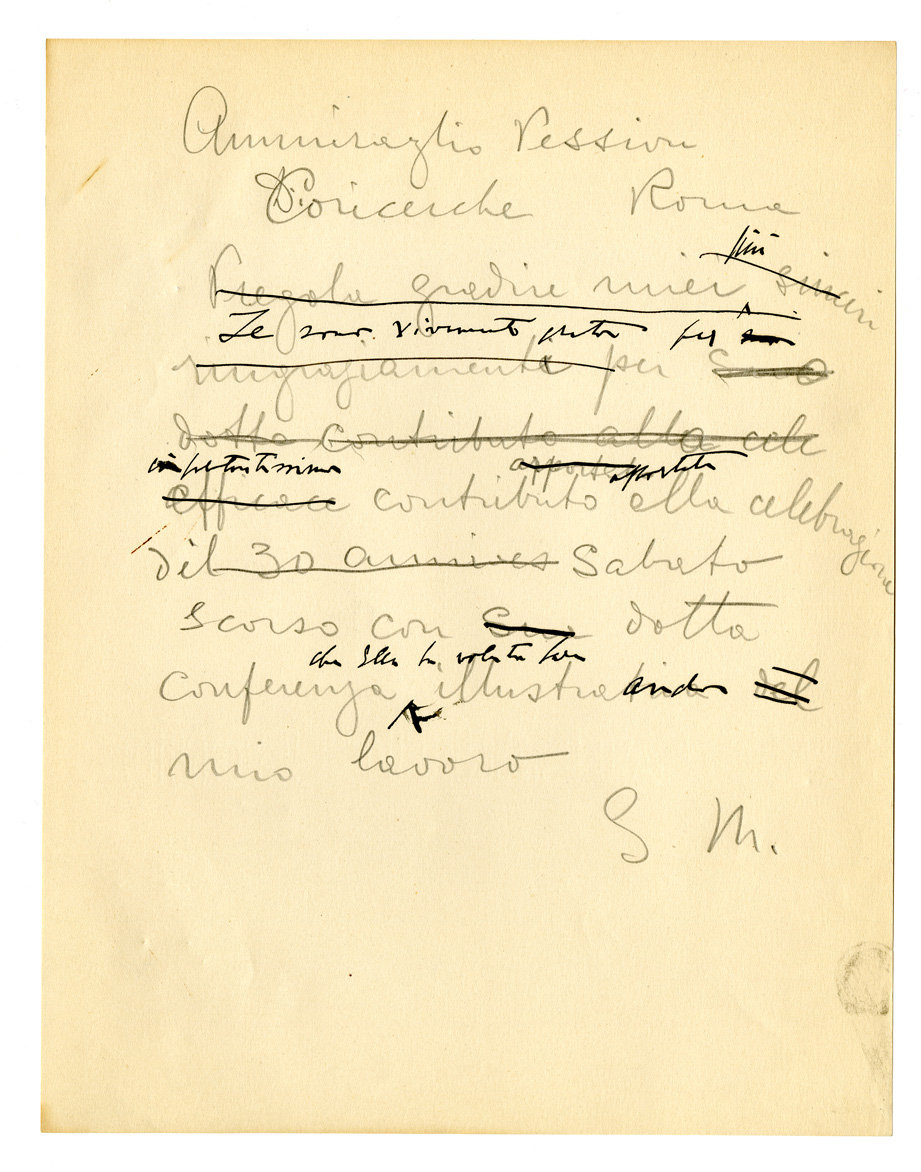 Ammiraglio Pession
Coricerche Roma
più
Pregola gradire miei sinceri
Le sono vivamente grato per suo
ringraziamenti per Suo
dotto contributo alla cele
importantissimo apportato apportato
efficace contributo alla celebrazione
del 30 annivers Sabato
scorso con Sua dotta
che Ella ha voluto fare
Conferenza illustrativa del
mio lavoro
G. M.